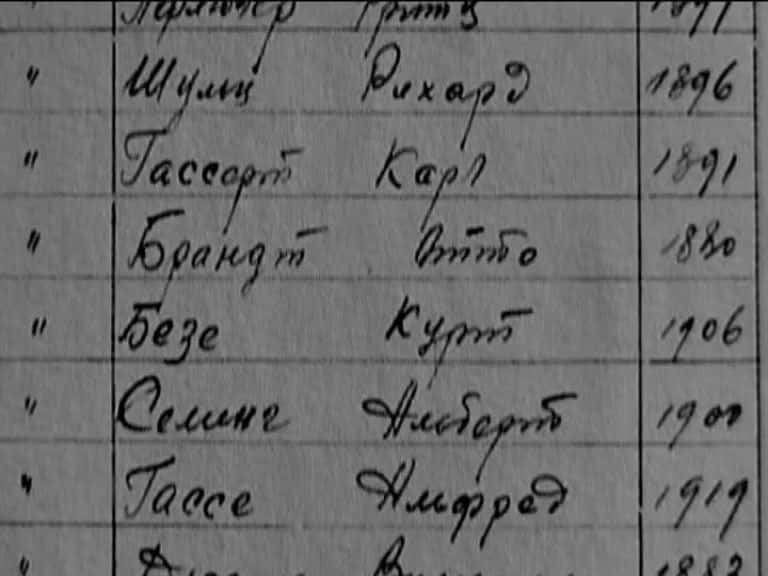 " Шульц Рихард 1896
" Гассерт Карл 1891
" Брандт Отто 1880
" Безе Курт 1906
" Селинг Альберт 1900
" Гассе Альфред 1919
"